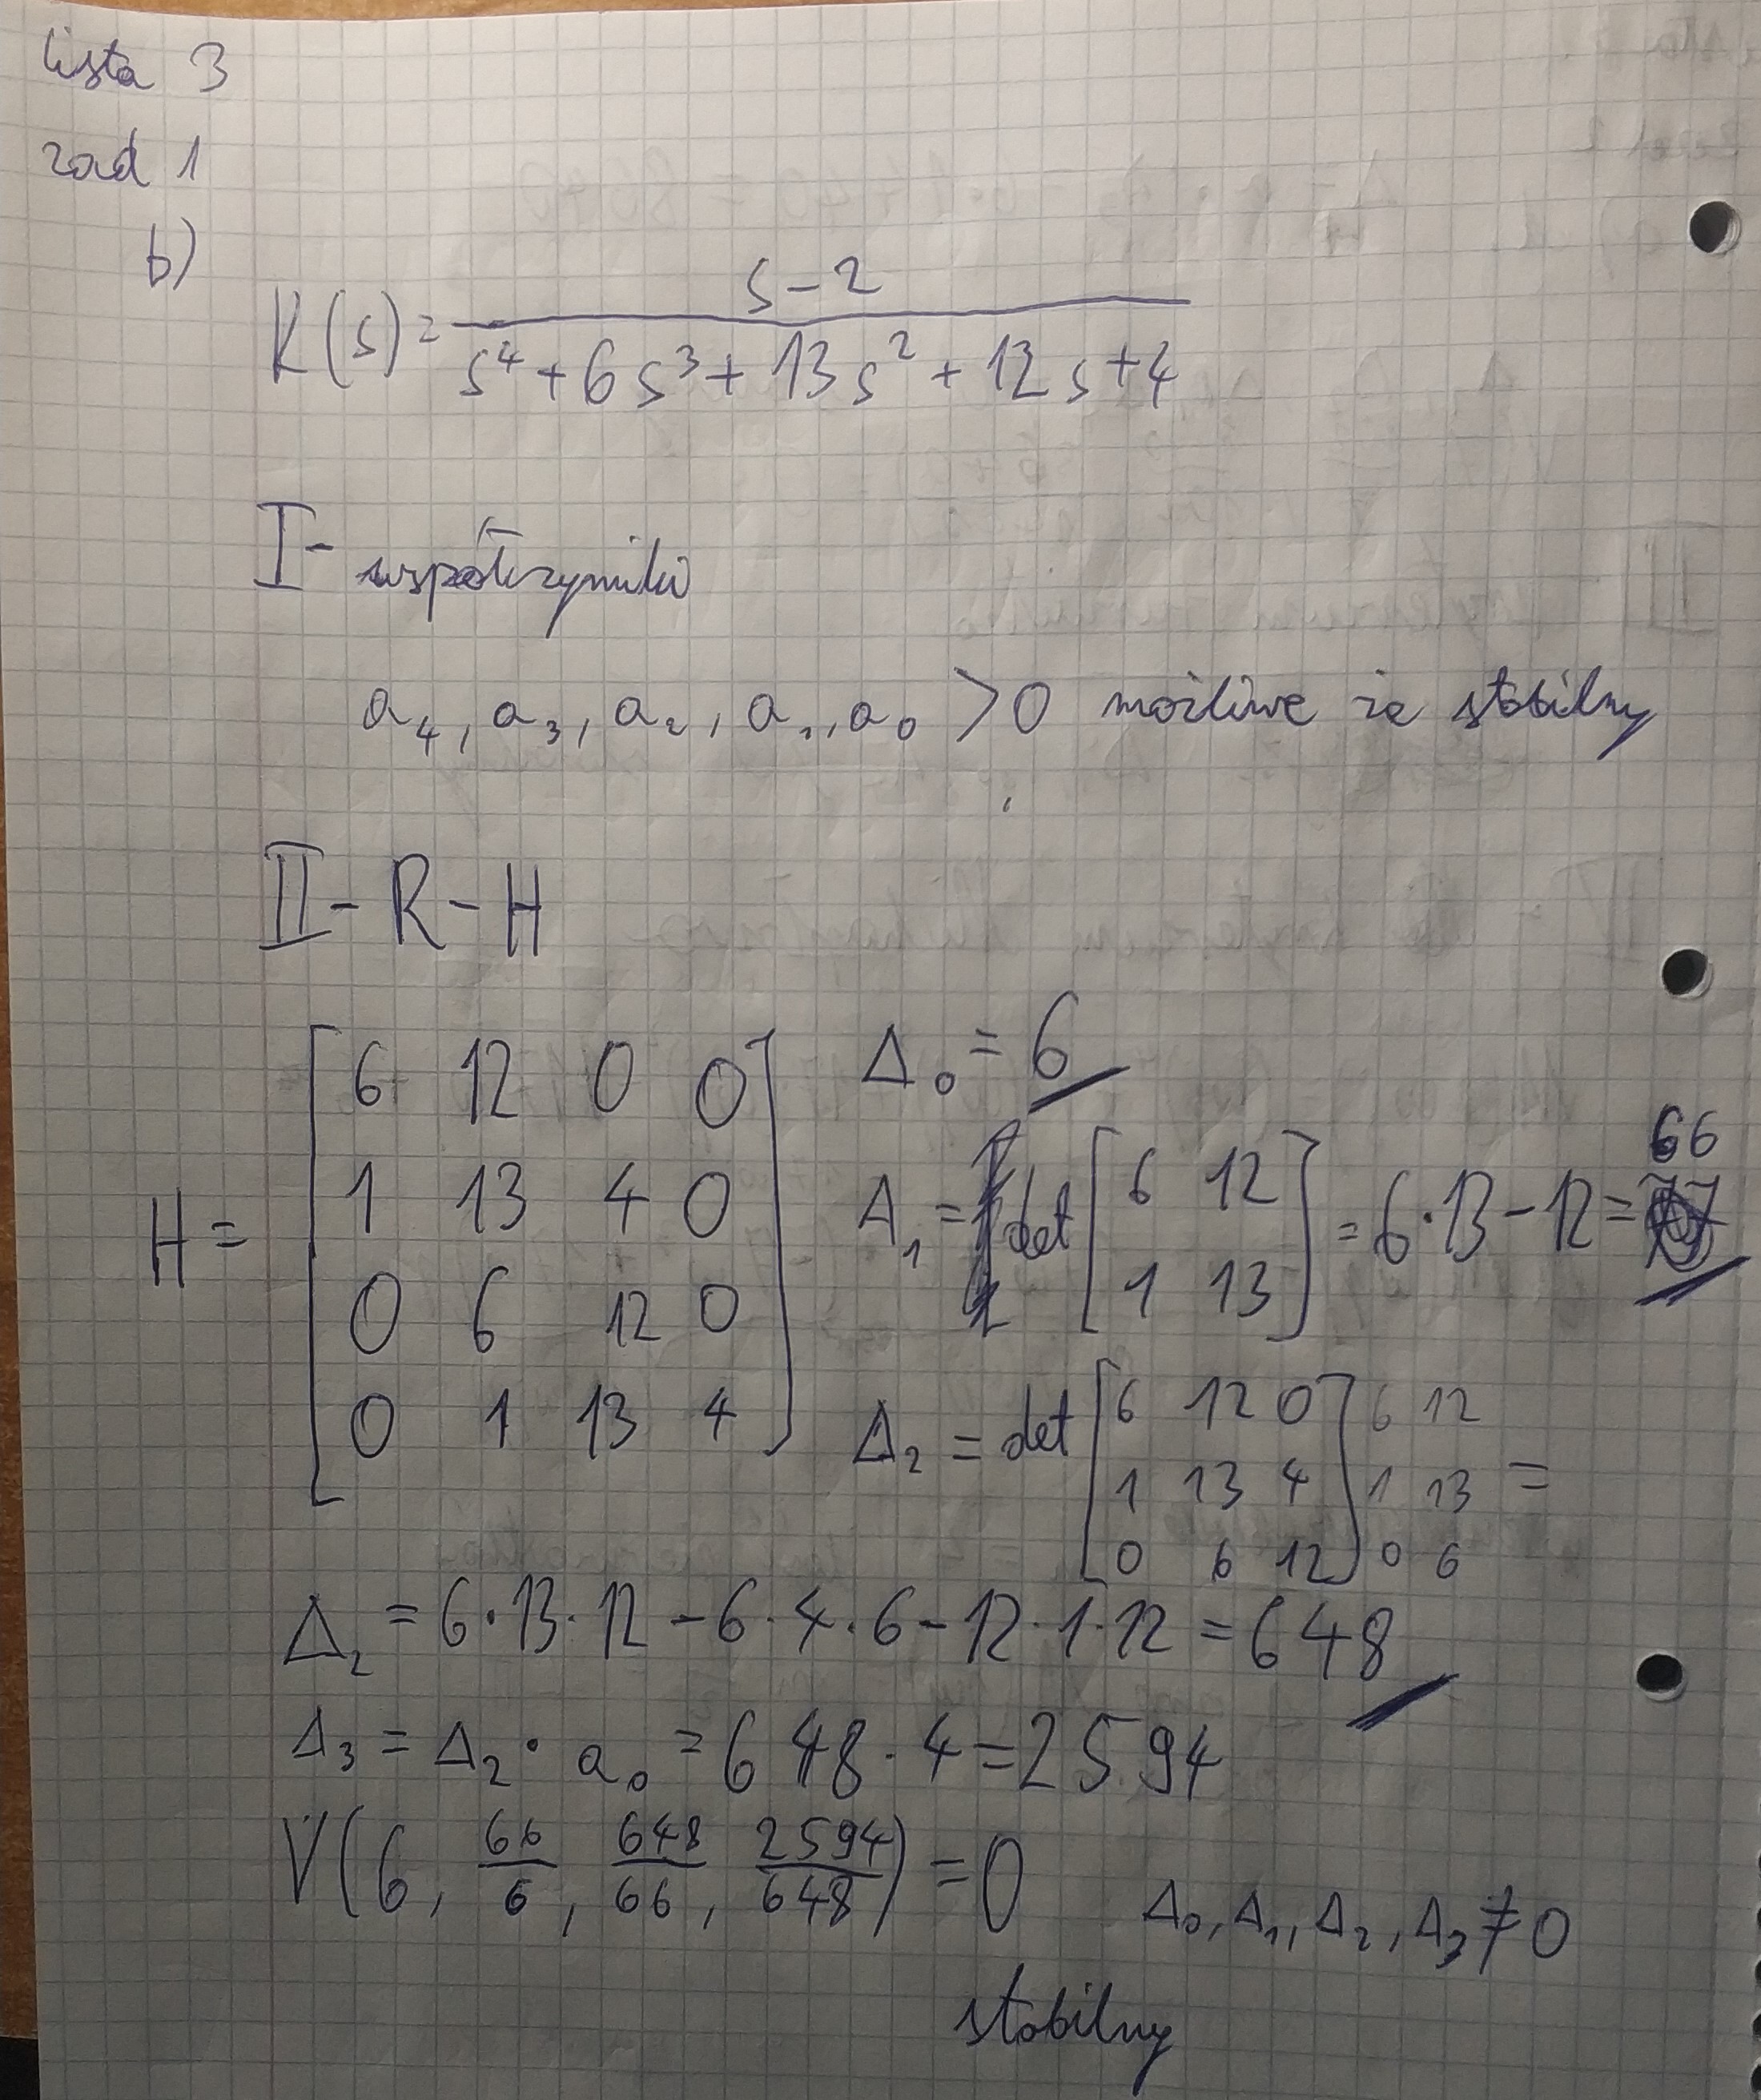 lista 3
zad 1
b)
K(s) = \frac{s-2}{s^4+6s^3+13s^2+12s+4}
I - współrzyniki
a_4, a_3, a_2, a_1, a_0 > 0 możliwe że stabilny
II - R - H
H = [6 12 0 0; 1 13 4 0; 0 6 12 0; 0 1 13 4]
Δ_0 = 6
Δ_1 = det [6 12; 1 13] = 6·13-12 = 66
Δ_2 = det [6 12 0; 1 13 4; 0 6 12] 6 12; 1 13; 0 6 =
Δ_2 = 6·13·12 - 6·4·6 - 12·1·12 = 648
Δ_3 = Δ_2 · a_0 = 648·4 = 2594
V(6, \frac{66}{6}, \frac{648}{66}, \frac{2594}{648}) = 0 Δ_0, Δ_1, Δ_2, Δ_3 ≠ 0
stabilny